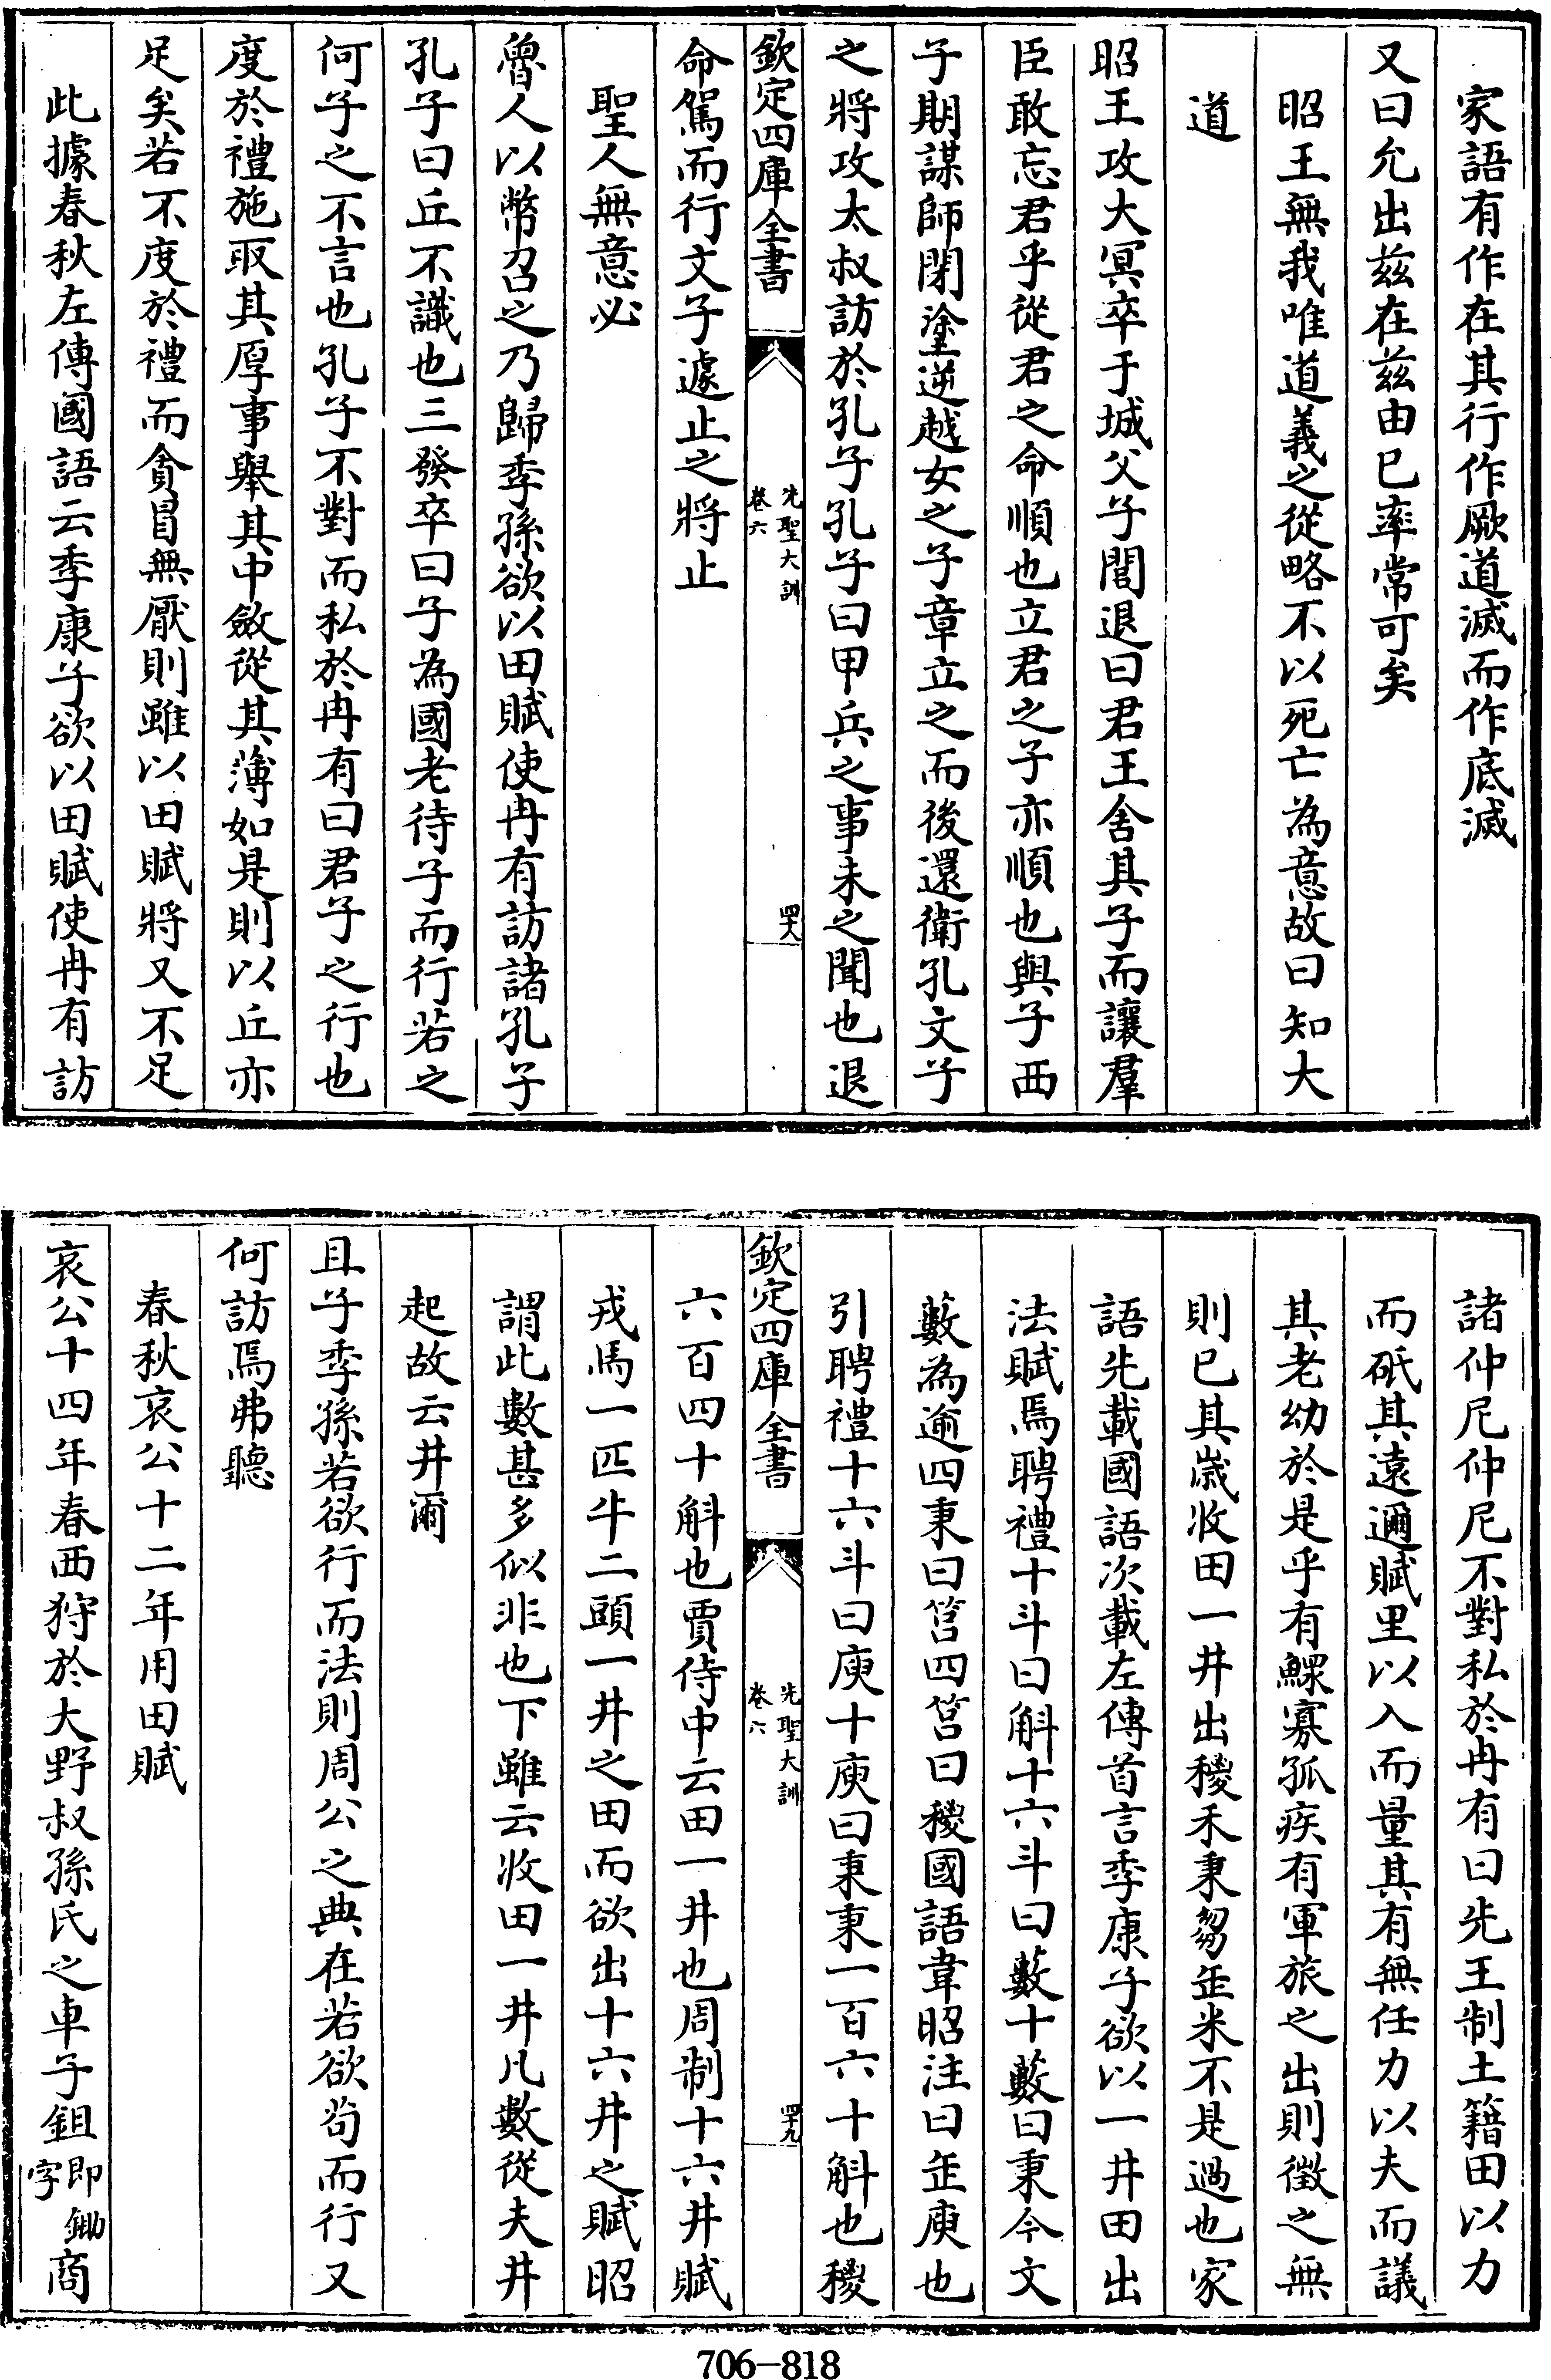 家語有作在其行作厥道滅而作底滅
又曰允出兹在兹由已率常可矣
昭王無我唯道義之從略不以死亡為意故曰知大
道
昭王攻大冥卒于城父子閭退曰君王舍其子而讓羣
臣敢忘君乎從君之命順也立君之子亦順也與子西
子期謀師閉塗逆越女之子章立之而後還衛孔文子
之將攻太叔訪於孔子孔子曰甲兵之事未之聞也退
欽定四庫全書
先聖大訓
卷六
四十八
命駕而行文子遽止之將止
聖人無意必
魯人以幣召之乃歸季孫欲以田賦使冉有訪諸孔子
孔子曰丘不識也三發卒曰子為國老待子而行若之
何子之不言也孔子不對而私於冉有曰君子之行也
度於禮施取其厚事舉其中斂從其薄如是則以丘亦
足矣若不度於禮而貪冒無厭則雖以田賦將又不足
此據春秋左傳國語云季康子欲以田賦使冉有訪
諸仲尼仲尼不對私於冉有曰先王制土籍田以力
而砥其遠邇賦里以入而量其有無任力以夫而議
其老幼於是乎有鰥寡孤疾有軍旅之出則徵之無
則已其歲收田一井出稷禾秉芻缶米不是過也家
語先載國語次載左傳首言季康子欲以一井田出
法賦焉聘禮十斗曰斛十六斗曰籔十籔曰秉今文
籔為逾四秉曰筥四筥曰稷國語韋昭注曰缶庾也
引聘禮十六斗曰庾十庾曰秉秉一百六十斛也稷
欽定四庫全書
先聖大訓
卷六
四十九
六百四十斛也賈侍中云田一井也周制十六井賦
戎馬一匹牛二頭一井之田而欲出十六井之賦昭
謂此數甚多似非也下雖云收田一井凡數從夫井
起故云井爾
且子季孫若欲行而法則周公之典在若欲苟而行又
何訪焉弗聽
春秋哀公十二年用田賦
哀公十四年春西狩於大野叔孫氏之車子鉏即鋤字商
706-818